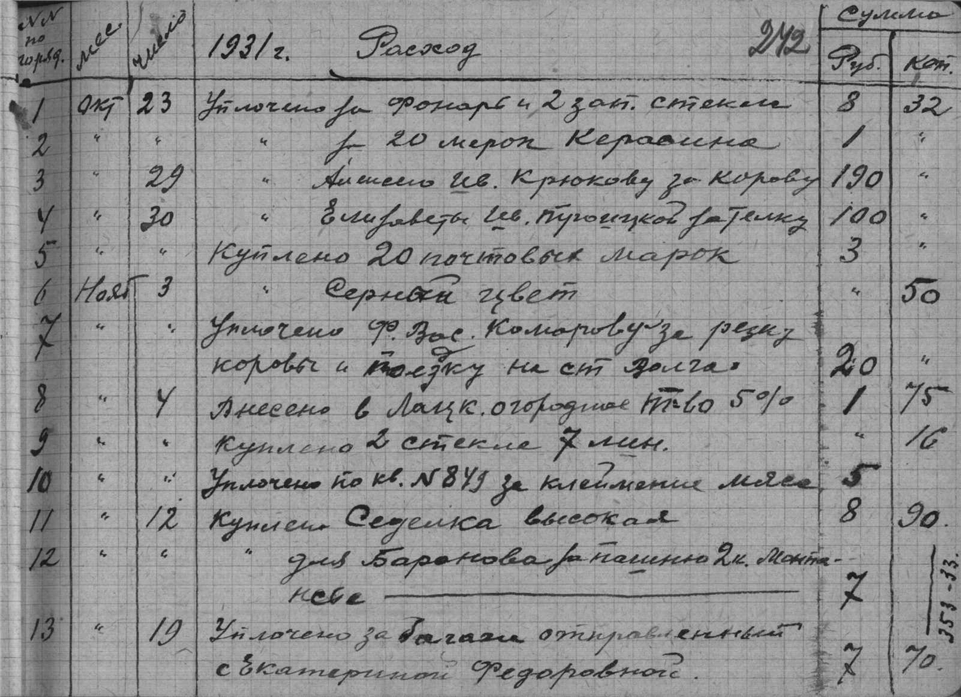 NN по поряд. мес. число 1931 г. Расход 242 Сумма Руб. Коп.
1 Окт 23 Уплочено за Фонарь и 2 зап. стекла 8 32
2 " " " за 20 мерок Керасина 1 "
3 " 29 " Алексею Ив. Крюкову за корову 190 "
4 " 30 " Елизаветы Ив. за телку 100 "
5 " " Куплено 20 почтовых марок 3 "
6 Нояб 3 " Серный цвет " 50
7 " " Уплочено Ф. Вас. Комарову за резку
коровы и поездку на ст Волга 20 "
8 " 4 Внесено в Лацк. огородное Т-во 5% 1 75
9 " " Куплено 2 стекла 7 лин. " 16
10 " " Уплочено по кв. N 849 за клеймение мяса 5
11 " 12 Куплена Седелка высокая 8 90.
12 " " " для Баранова за пашню 2 к.
7
353-33.
13 " 19 Уплочено за багаж отправленный
с Екатериной Федоровной. 7 70.